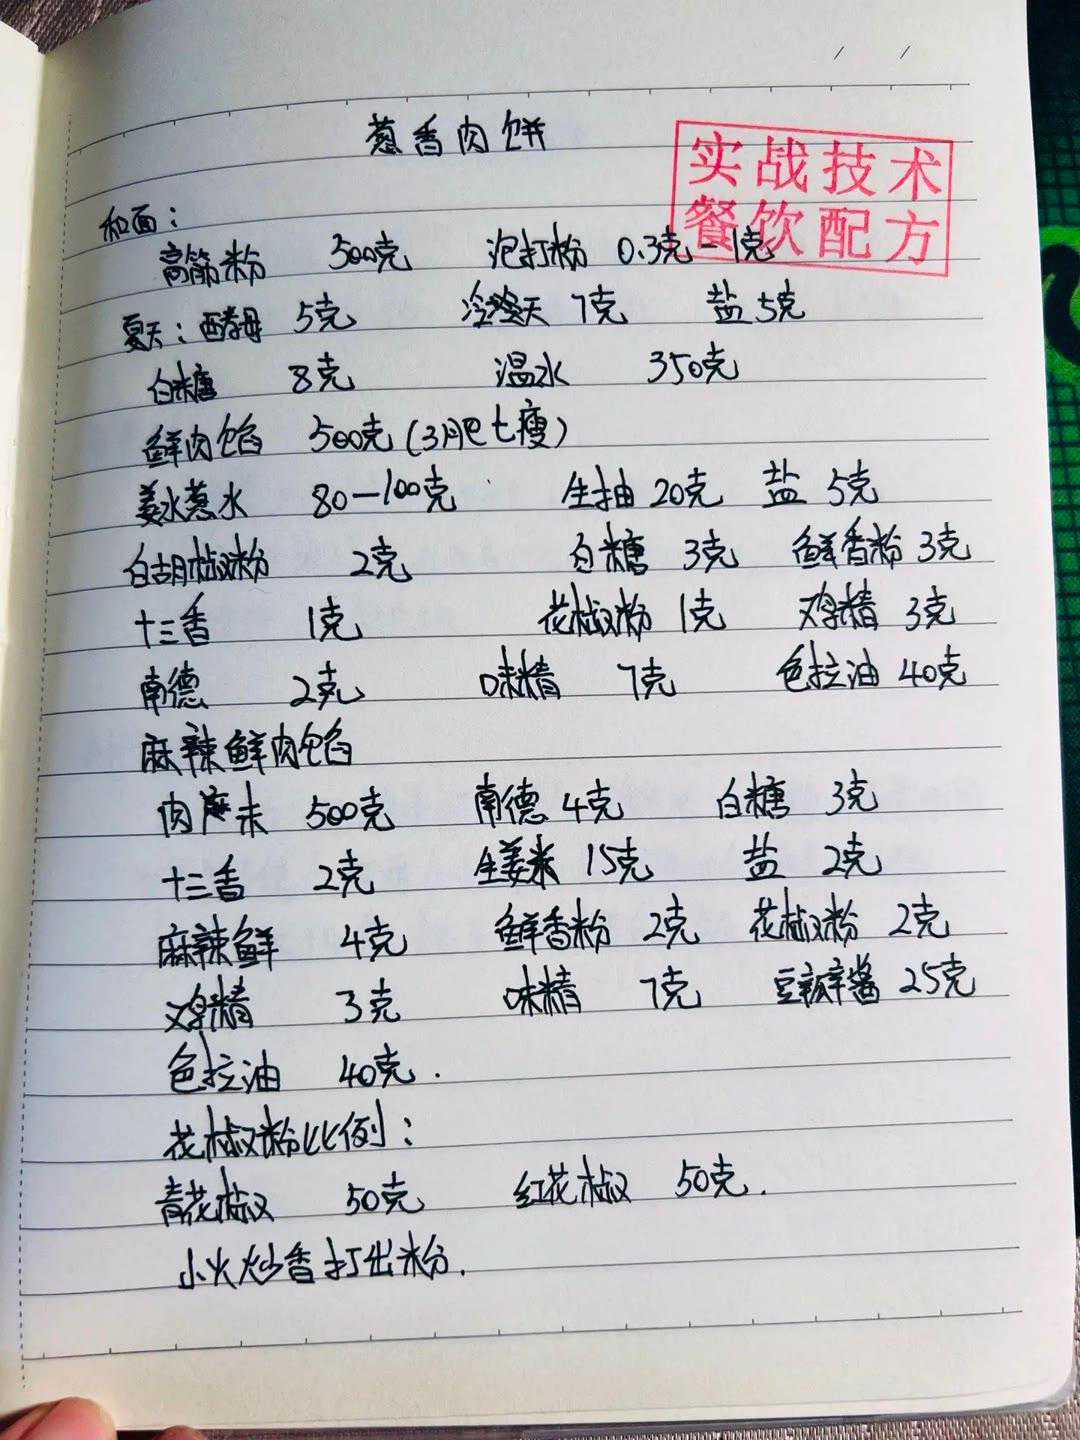 葱香肉饼
实战技术
餐饮配方
和面：
高筋粉 500克 泡打粉 0.3克-1克
夏天：酵母 5克 冷天 7克 盐5克
白糖 8克 温水 350克
鲜肉馅 500克(3肥七瘦)
姜水葱水 80-100克 生抽 20克 盐 5克
白胡椒粉 2克 白糖 3克 鲜香粉 3克
十三香 1克 花椒粉 1克 鸡精 3克
南德 2克 味精 7克 色拉油 40克
麻辣鲜肉馅
肉末 500克 南德 4克 白糖 3克
十三香 2克 生姜米 15克 盐 2克
麻辣鲜 4克 鲜香粉 2克 花椒粉 2克
鸡精 3克 味精 7克 豆瓣酱 25克
色拉油 40克.
花椒粉比例：
青花椒 50克 红花椒 50克.
小火炒香打出粉.